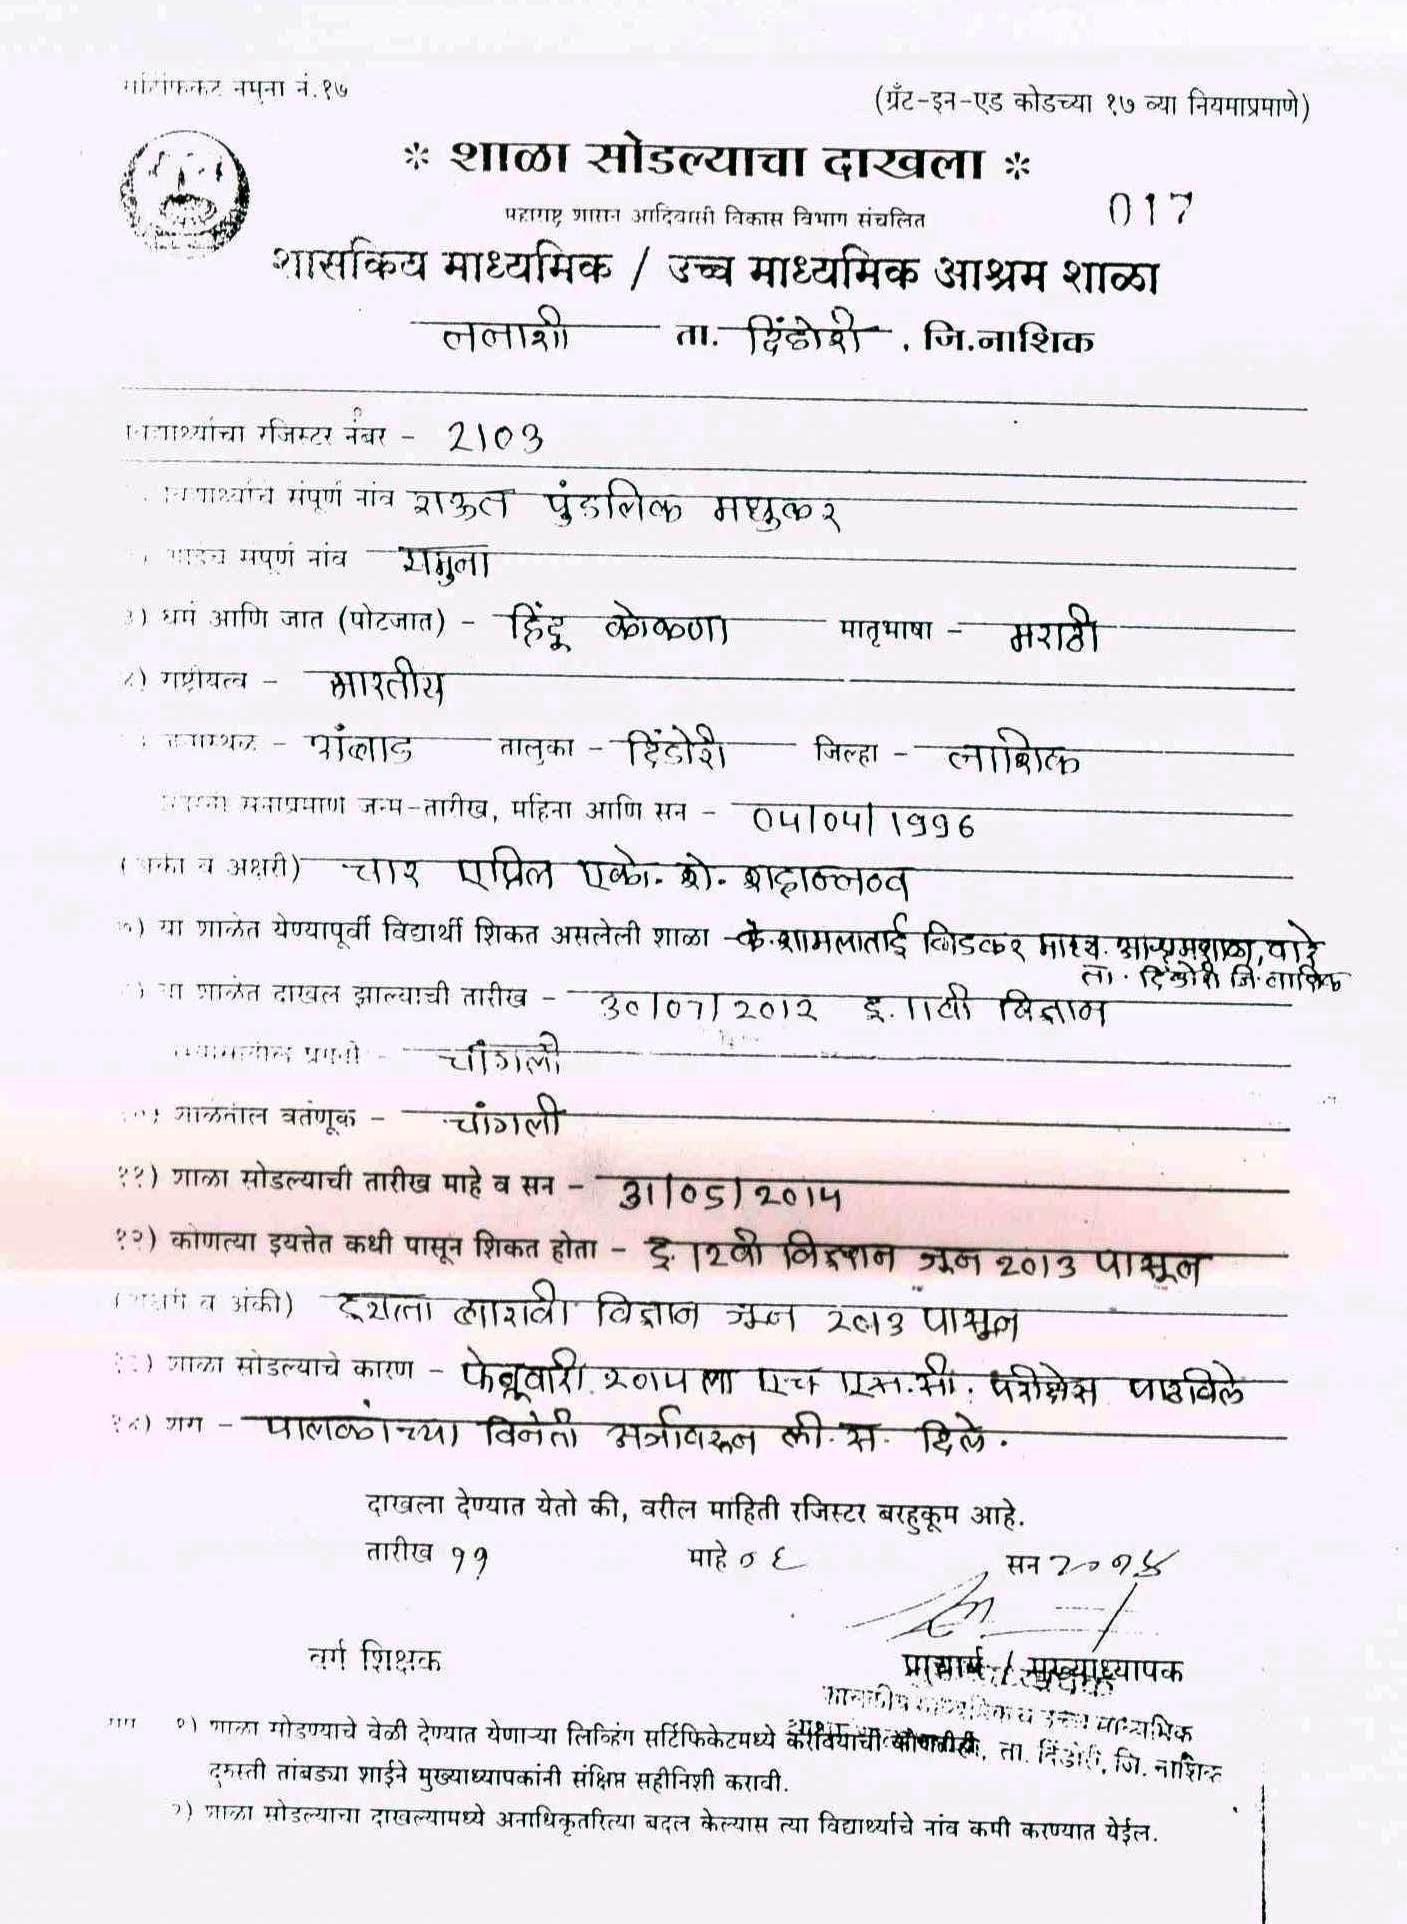 नमुना नं.१७
(ग्रँट-इन-एड कोडच्या १७ व्या नियमाप्रमाणे)
* शाळा सोडल्याचा दाखला *
017
महाराष्ट्र शासन आदिवासी विकास विभाग संचलित
शासकिय माध्यमिक / उच्च माध्यमिक आश्रम शाळा
ननाशी ता. दिंडोरी . जि.नाशिक
रजिस्टर नंबर - 2103
संपूर्ण नांव राऊत पुंडलिक मधुकर
संपूर्ण नांव यमुना
३) धर्म आणि जात (पोटजात) - हिंदू कोकणा मातृभाषा - मराठी
४) राष्ट्रीयत्व - भारतीय
तालुका - दिंडोरी जिल्हा - नाशिक
जन्म-तारीख, महिना आणि सन - 04/04/1996
व अक्षरी) चार एप्रिल एको. शे. शहान्नव
७) या शाळेत येण्यापूर्वी विद्यार्थी शिकत असलेली शाळा - कै. शामलाताई बिडकर माध्य. आश्रमशाळा, वारे
ता. दिंडोरी जि. नाशिक
या शाळेत दाखल झाल्याची तारीख - 30/07/2012 इ. 11वी विज्ञान
प्रगती - चांगली
शाळेतील वर्तणूक - चांगली
११) शाळा सोडल्याची तारीख माहे व सन - 31/05/2014
१२) कोणत्या इयत्तेत कधी पासून शिकत होता - इ. 12वी विज्ञान जून 2013 पासून
(अक्षरी व अंकी) इयत्ता बारावी विज्ञान जून 2013 पासून
१३) शाळा सोडल्याचे कारण - फेब्रूवारी. 2014 ला एच एस.सी. परीक्षेस पाठविले
१४) शेरा - पालकांच्या विनंती अर्जावरून ली. स. दिले.
दाखला देण्यात येतो की, वरील माहिती रजिस्टर बरहुकूम आहे.
तारीख ११ माहे ०६ सन २०१४
वर्ग शिक्षक
प्राचार्य / मुख्याध्यापक
माध्यमिक व उच्च माध्यमिक
ता. दिंडोरी, जि. नाशिक
१) शाळा सोडण्याचे वेळी देण्यात येणाऱ्या लिव्हिंग सर्टिफिकेटमध्ये करावयाची कोणतीही
दुरुस्ती तांबड्या शाईने मुख्याध्यापकांनी संक्षिप्त सहीनिशी करावी.
२) शाळा सोडल्याचा दाखल्यामध्ये अनाधिकृतरित्या बदल केल्यास त्या विद्यार्थ्याचे नांव कमी करण्यात येईल.